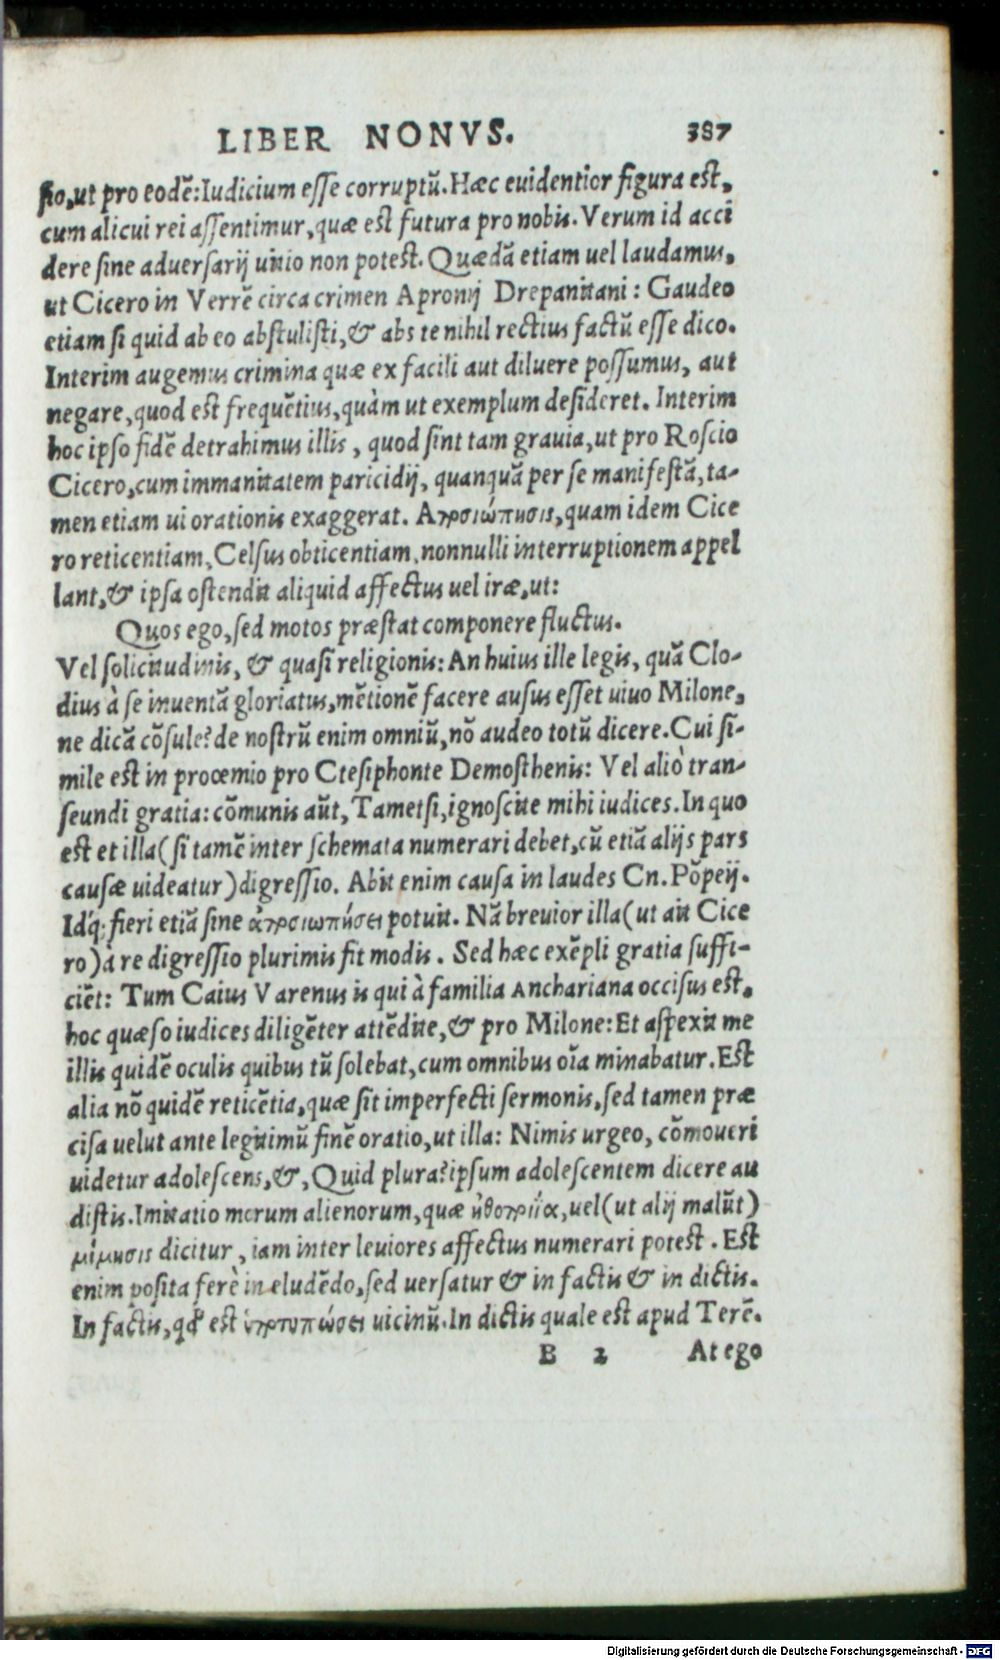 LIBER NONVS. 387
sio, ut pro eodē: Iudicium esse corruptū. Hæc euidentior figura est,
cum alicui rei assentimur, quæ est futura pro nobis. Verum id acci
dere sine aduersarij uitio non potest. Quædā etiam uel laudamus,
ut Cicero in Verrē circa crimen Apronij Drepanitani: Gaudeo
etiam si quid ab eo abstulisti, & abs te nihil rectius factū esse dico.
Interim augemus crimina quæ ex facili aut diluere possumus, aut
negare, quod est frequētius, quàm ut exemplum desideret. Interim
hoc ipso fidē detrahimus illis, quod sint tam grauia, ut pro Roscio
Cicero, cum immanitatem paricidij, quanquā per se manifestā, ta-
men etiam ui orationis exaggerat. Αποσιώπησις, quam idem Cice
ro reticentiam, Celsus obticentiam, nonnulli interruptionem appel
lant, & ipsa ostendit aliquid affectus uel iræ, ut:
Quos ego, sed motos præstat componere fluctus.
Vel solicitudinis, & quasi religionis: An huius ille legis, quā Clo-
dius à se inuentā gloriatus, mētionē facere ausus esset uiuo Milone,
ne dicā cōsule? de nostrū enim omniū, nō audeo totū dicere. Cui si-
mile est in proœmio pro Ctesiphonte Demosthenis: Vel aliò tran-
seundi gratia: cōmunis aūt, Tametsi, ignoscite mihi iudices. In quo
est et illa (si tamē inter schemata numerari debet, cū etiā alijs pars
causæ uideatur) digressio. Abit enim causa in laudes Cn. Pōpeij.
Idq́; fieri etiā sine ἀποσιωπήσει potuit. Nā breuior illa (ut ait Cice
ro) à re digressio plurimis fit modis. Sed hæc exēpli gratia suffi-
ciēt: Tum Caius Varenus is qui à familia Anchariana occisus est,
hoc quæso iudices diligēter attēdite, & pro Milone: Et aspexit me
illis quidē oculis quibus tū solebat, cum omnibus oīa minabatur. Est
alia nō quidē reticētia, quæ sit imperfecti sermonis, sed tamen præ
cisa uelut ante legitimū finē oratio, ut illa: Nimis urgeo, cōmoueri
uidetur adolescens, &, Quid plura? ipsum adolescentem dicere au
distis. Imitatio morum alienorum, quæ ἠθοποιΐα, uel (ut alij malūt)
μίμησις dicitur, iam inter leuiores affectus numerari potest. Est
enim posita ferè in eludēdo, sed uersatur & in factis & in dictis.
In factis, qđ est ὑποτυπώσει uicinū. In dictis quale est apud Terē.
B 2 At ego
Digitalisierung gefördert durch die Deutsche Forschungsgemeinschaft - DFG